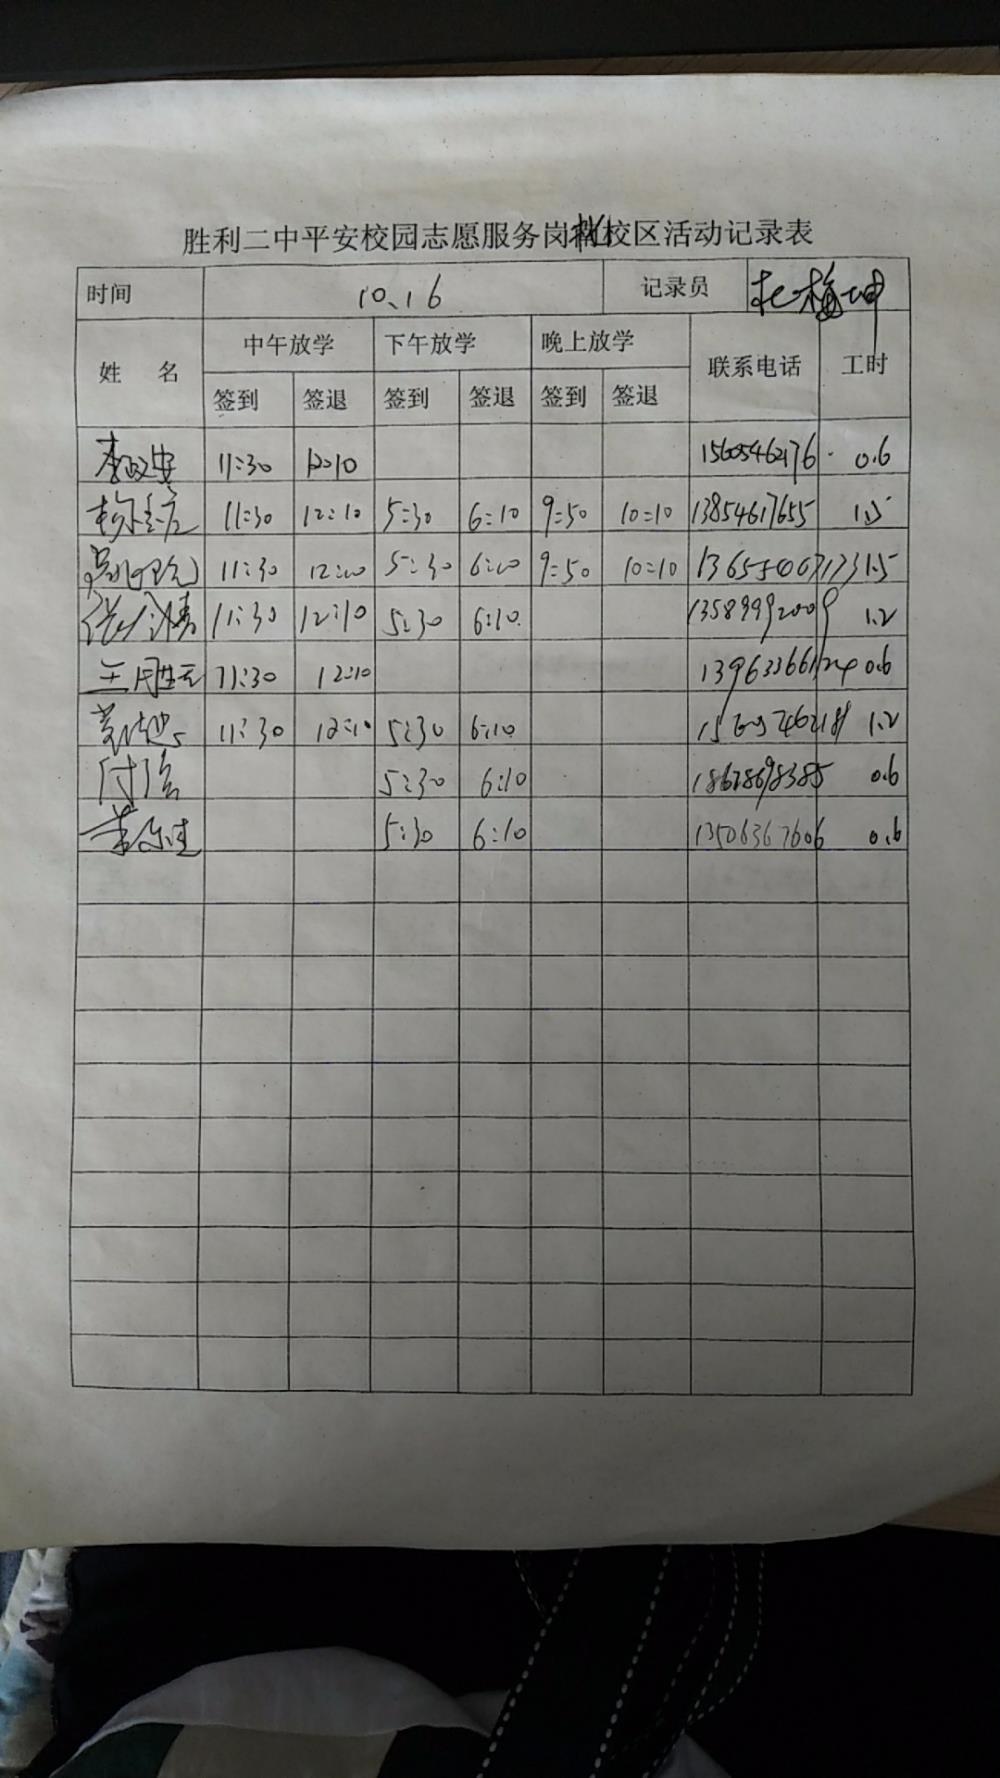 胜利二中平安校园志愿服务岗北校区活动记录表
时间 10、16 记录员 杜梅坤
姓 名 中午放学 下午放学 晚上放学 联系电话 工时
签到 签退 签到 签退 签到 签退
李政安 11:30 12:10 15605462176 0.6
11:30 12:10 5:30 6:10 9:50 10:10 13854617655 1.5
11:30 12:10 5:30 6:10 9:50 10:10 1.5
11:30 12:10 5:30 6:10 13589992009 1.2
王胜云 11:30 12:10 13963366124 0.6
11:30 12:10 5:30 6:10 1.2
付强 5:30 6:10 18678698385 0.6
5:30 6:10 13506367606 0.6